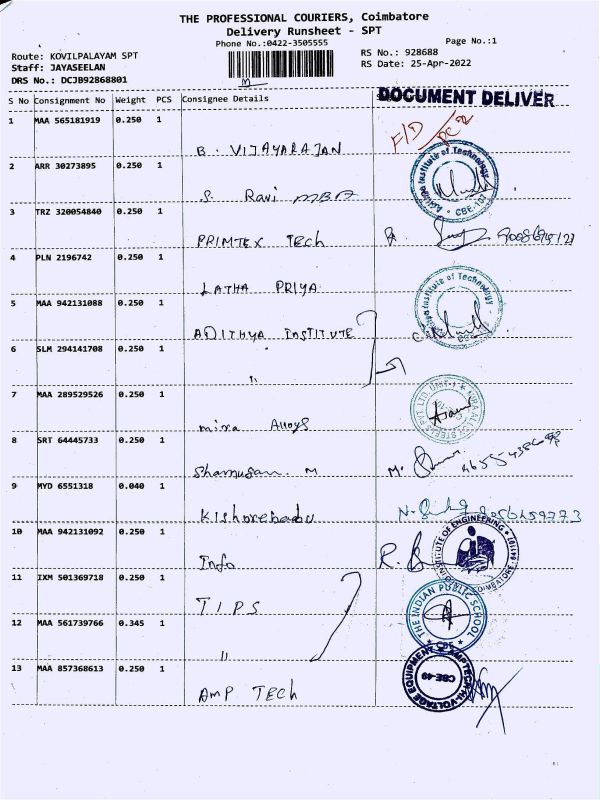 THE PROFESSIONAL COURIERS, Coimbatore
Delivery Runsheet - SPT
Phone No.:0422-3505555
Page No.:1
Route: KOVILPALAYAM SPT
RS No.: 928688
Staff: JAYASEELAN
RS Date: 25-Apr-2022
DRS No.: DCJB92868801
S No Consignment No Weight PCS Consignee Details
DOCUMENT DELIVER
1 MAA 565181919 0.250 1
B. VIJAYARAJAN F/D
2 ARR 30273895 0.250 1
S. Ravi MBA Institute of Technology CBE-107
3 TRZ 320054840 0.250 1
PRIMTEX Tech
4 PLN 2196742 0.250 1
LATHA PRIYA
5 MAA 942131088 0.250 1
ADITHYA INSTITUTE Institute of Technology
6 SLM 294141708 0.250 1
"
7 MAA 289529526 0.250 1
mira Alloys
8 SRT 64445733 0.250 1
Shamugan. M M.
9 MYD 6551318 0.040 1
Kishorebabu
10 MAA 942131092 0.250 1
Info R. INSTITUTE OF ENGINEERING COIMBATORE
11 IXM 501369718 0.250 1
TIPS THE INDIAN PUBLIC SCHOOL CBE
12 MAA 561739766 0.345 1
"
13 MAA 857368613 0.250 1
AMP TECH CBE-49